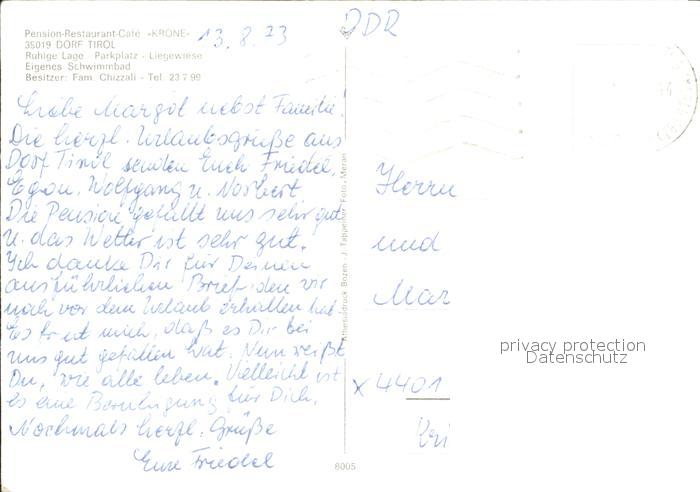 Pension-Restaurant-Café «KRONE»
35019 DORF TIROL
Ruhige Lage - Parkplatz - Liegewiese
Eigenes Schwimmbad
Besitzer: Fam. Chizzali - Tel. 23 7 99
13.8.73
DDR
Liebe Margot nebst Familie!
Die herzl. Urlaubsgrüße aus
Dorf Tirol senden Euch Friedel,
Egon, Wolfgang u. Norbert.
Die Pension gefällt uns sehr gut
u. das Wetter ist sehr gut.
Ich danke Dir für Deinen
ausführlichen Brief den wir
noch vor dem Urlaub erhalten hat.
Es freut mich, daß es Dir bei
uns gut gefallen hat. Nun weißt
Du, wie alle leben. Vielleicht ist
es eine Beruhigung für Dich.
Nochmals herzl. Grüße
Eure Friedel
Athesiadruck Bozen - J. Tappeiner Foto - Meran
Herrn
und
Mar
x 4401
privacy protection
Datenschutz
8005